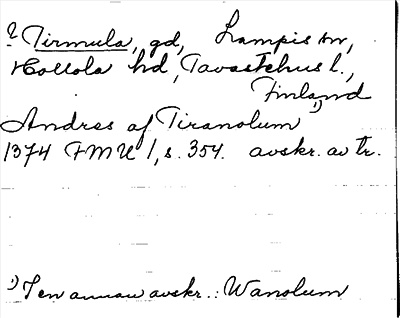 ? Tirmula, gd, Lampis sn,
Hollola hd, Tavastehus l.,
Finland
Andras af Tiranolum ¹)
1374 FMU 1, s. 354. avskr. av tr.
¹) I en annan avskr.: Wanolum